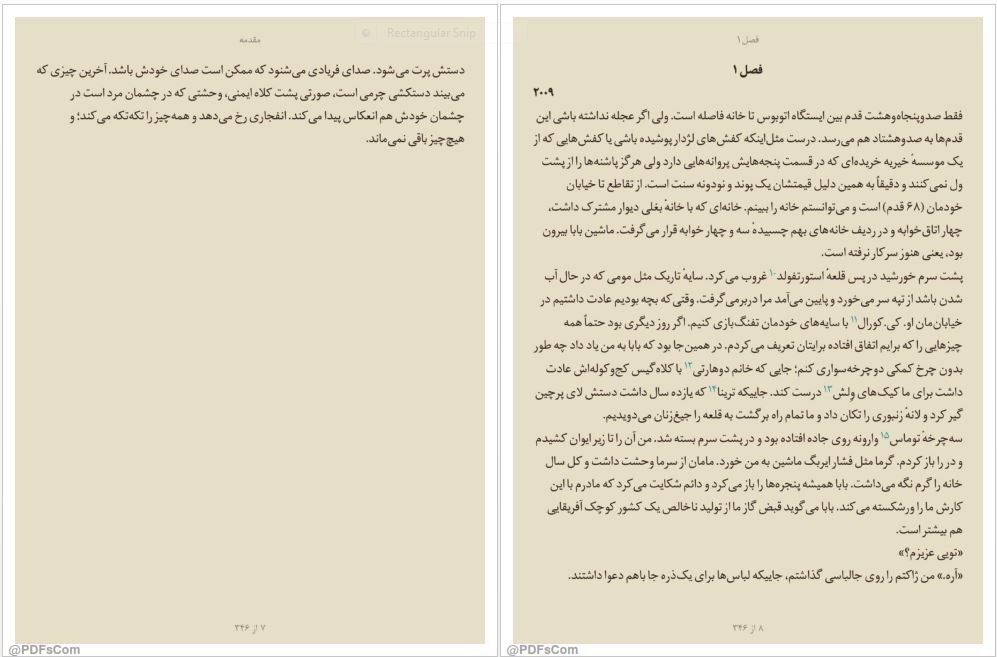 Rectangular Snip
مقدمه
دستش پرت می‌شود. صدای فریادی می‌شنود که ممکن است صدای خودش باشد. آخرین چیزی که
می‌بیند دستکشی چرمی است، صورتی پشت کلاه ایمنی، وحشتی که در چشمان مرد است در
چشمان خودش هم انعکاس پیدا می‌کند. انفجاری رخ می‌دهد و همه‌چیز را تکه‌تکه می‌کند؛ و
هیچ‌چیز باقی نمی‌ماند.
۷ از ۳۴۶
@PDFsCom
فصل ۱
فصل ۱
۲۰۰۹
فقط صدوپنجاه‌وهشت قدم بین ایستگاه اتوبوس تا خانه فاصله است. ولی اگر عجله نداشته باشی این
قدم‌ها به صدوهشتاد هم می‌رسد. درست مثل‌اینکه کفش‌های لژدار پوشیده باشی یا کفش‌هایی که از
یک موسسهٔ خیریه خریده‌ای که در قسمت پنجه‌هایش پروانه‌هایی دارد ولی هرگز پاشنه‌ها را از پشت
ول نمی‌کنند و دقیقاً به همین دلیل قیمتشان یک پوند و نودونه سنت است. از تقاطع تا خیابان
خودمان (۶۸ قدم) است و می‌توانستم خانه را ببینم. خانه‌ای که با خانهٔ بغلی دیوار مشترک داشت،
چهار اتاق‌خوابه و در ردیف خانه‌های بهم چسبیدهٔ سه و چهار خوابه قرار می‌گرفت. ماشین بابا بیرون
بود، یعنی هنوز سرکار نرفته است.
پشت سرم خورشید در پس قلعهٔ استورتفولد۱۰ غروب می‌کرد. سایهٔ تاریک مثل مومی که در حال آب
شدن باشد از تپه سر می‌خورد و پایین می‌آمد مرا دربرمی‌گرفت. وقتی‌که بچه بودیم عادت داشتیم در
خیابان‌مان او. کی.کورال۱۱ با سایه‌های خودمان تفنگ‌بازی کنیم. اگر روز دیگری بود حتماً همه
چیزهایی را که برایم اتفاق افتاده برایتان تعریف می‌کردم. در همین‌جا بود که بابا به من یاد داد چه طور
بدون چرخ کمکی دوچرخه‌سواری کنم؛ جایی که خانم دوهارتی۱۲ با کلاه‌گیس کج‌وکوله‌اش عادت
داشت برای ما کیک‌های ولش۱۳ درست کند. جاییکه ترینا۱۴ که یازده سال داشت دستش لای پرچین
گیر کرد و لانهٔ زنبوری را تکان داد و ما تمام راه برگشت به قلعه را جیغ‌زنان می‌دویدیم.
سه‌چرخهٔ توماس۱۵ وارونه روی جاده افتاده بود و در پشت سرم بسته شد. من آن را تا زیر ایوان کشیدم
و در را باز کردم. گرما مثل فشار ایربگ ماشین به من خورد. مامان از سرما وحشت داشت و کل سال
خانه را گرم نگه می‌داشت. بابا همیشه پنجره‌ها را باز می‌کرد و دائم شکایت می‌کرد که مادرم با این
کارش ما را ورشکسته می‌کند. بابا می‌گوید قبض گاز ما از تولید ناخالص یک کشور کوچک آفریقایی
هم بیشتر است.
«تویی عزیزم؟»
«آره.» من ژاکتم را روی جالباسی گذاشتم، جاییکه لباس‌ها برای یک‌ذره جا باهم دعوا داشتند.
۸ از ۳۴۶
@PDFsCom